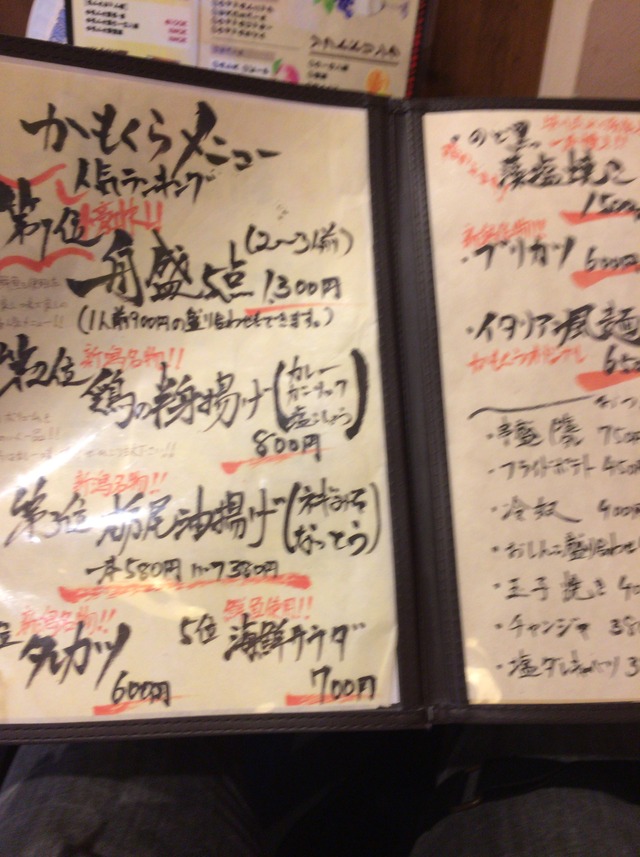 かもくらメニュー
人気ランキング
第1位
舟盛5点(2〜3人前)
1,300円
(1人前900円の盛り合わせもできます。)
第2位 新潟名物!!
鶏の半身揚げ(カレー
ガーリック
塩こしょう)
800円
新潟名物!!
第3位 栃尾油揚げ(ネギみそ
なっとう)
一本580円 ハーフ380円
位 新潟名物!!
タレカツ
600円
5位 鮮魚使用!!
海鮮サラダ
700円
・のど黒
藻塩焼
1500
新潟名物!!
・ブリカツ
600円
・イタリアン風麺
かもくらオリジナル
650
750円
・フライドポテト 450円
・冷奴 400円
・おしんこ盛り合わせ
・玉子焼き 40
・チャンジャ 380
・塩ダレキャベツ 3